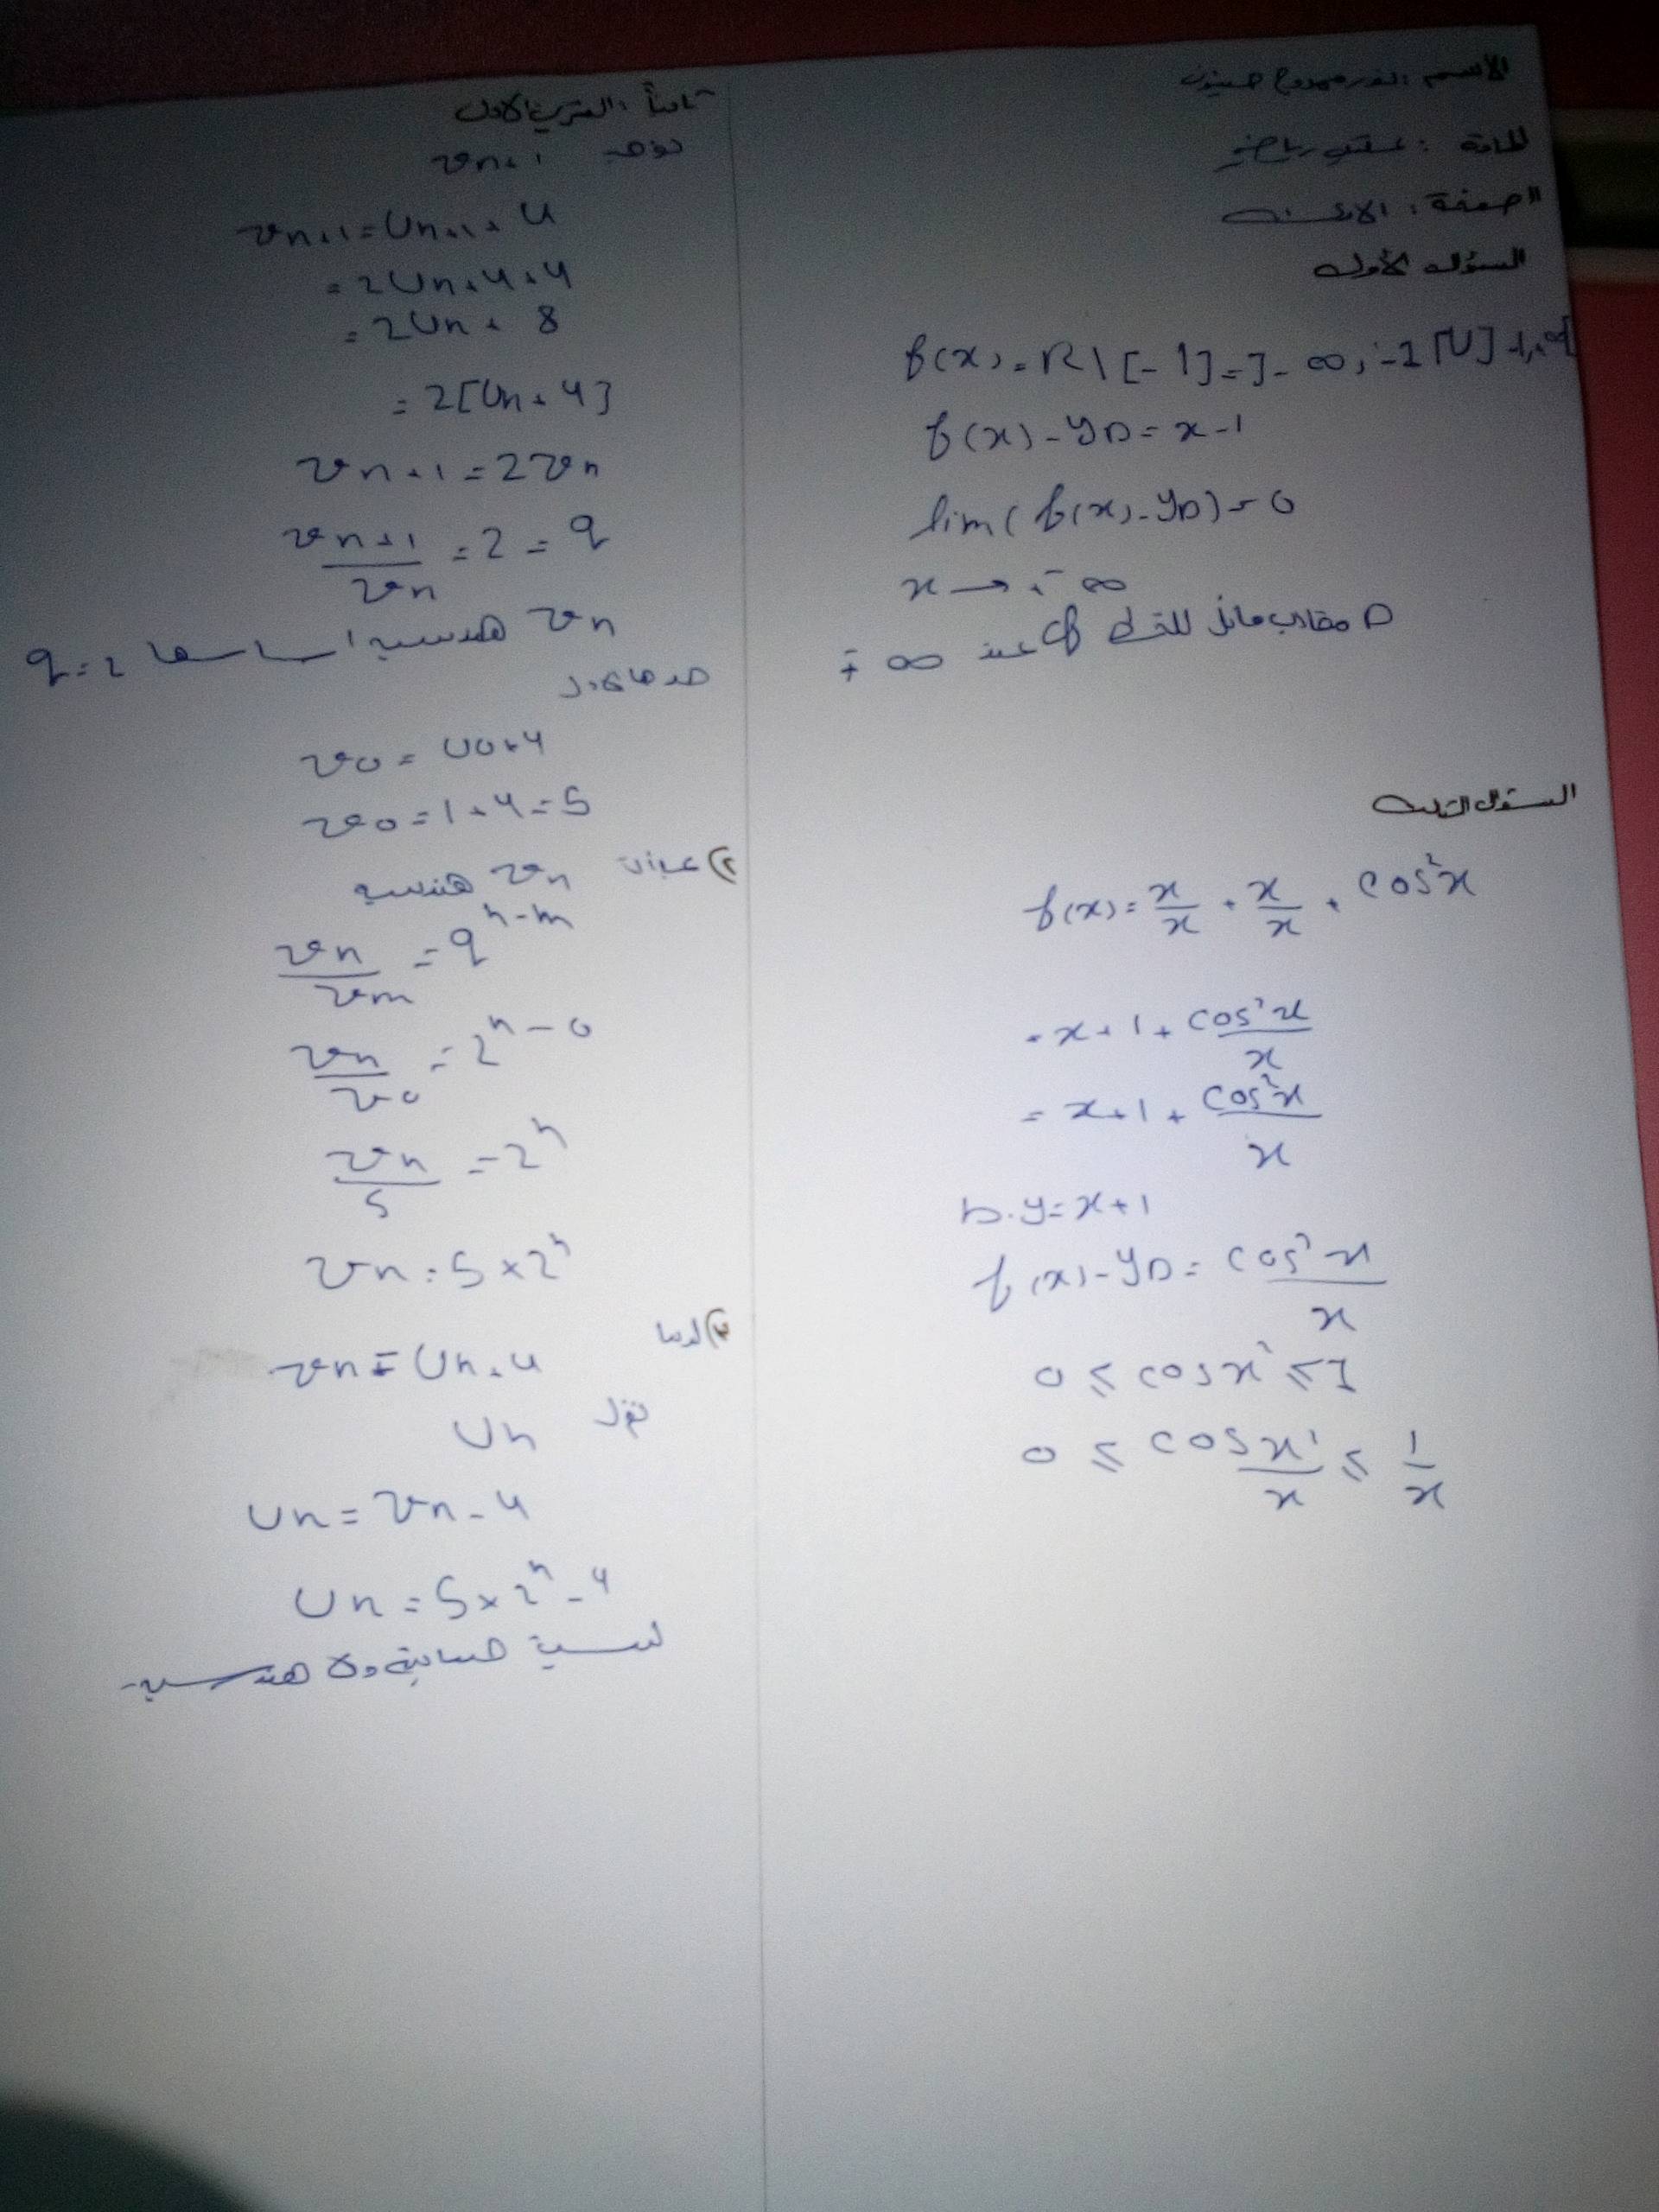 الاسم: ممدوح حسنون
المادة:
الصفحة: الاولى
السؤال الأول
f(x) = R \ [-1] = ]-∞, -1[ U ]-1, +∞[
f(x) - yD = x - 1
lim (f(x) - yD) = 0
x → +-∞
D مقارب مائل للخط C عند +-∞
السؤال الثالث
f(x) = x/x + x/x + cos²x
= x + 1 + cos²x/x
= x + 1 + cos²x/x
D. y = x + 1
f(x) - yD = cos²x/x
0 ≤ cosx² ≤ 1
0 ≤ cosx²/x ≤ 1/x
ثانياً: التمرين الأول
نوجد vn+1
vn+1 = Un+1 + 4
= 2Un + 4 + 4
= 2Un + 8
= 2[Un + 4]
vn+1 = 2vn
vn+1/vn = 2 = q
vn هندسية اساسها q = 2
v0 = U0 + 4
v0 = 1 + 4 = 5
2) vn هندسية
vn/vm = q^n-m
vn/v0 = 2^n-0
vn/5 = 2^n
vn = 5 × 2^n
3) لدينا
vn = Un + 4
Un
Un = vn - 4
Un = 5 × 2^n - 4
ليسة حسابية ولا هندسية